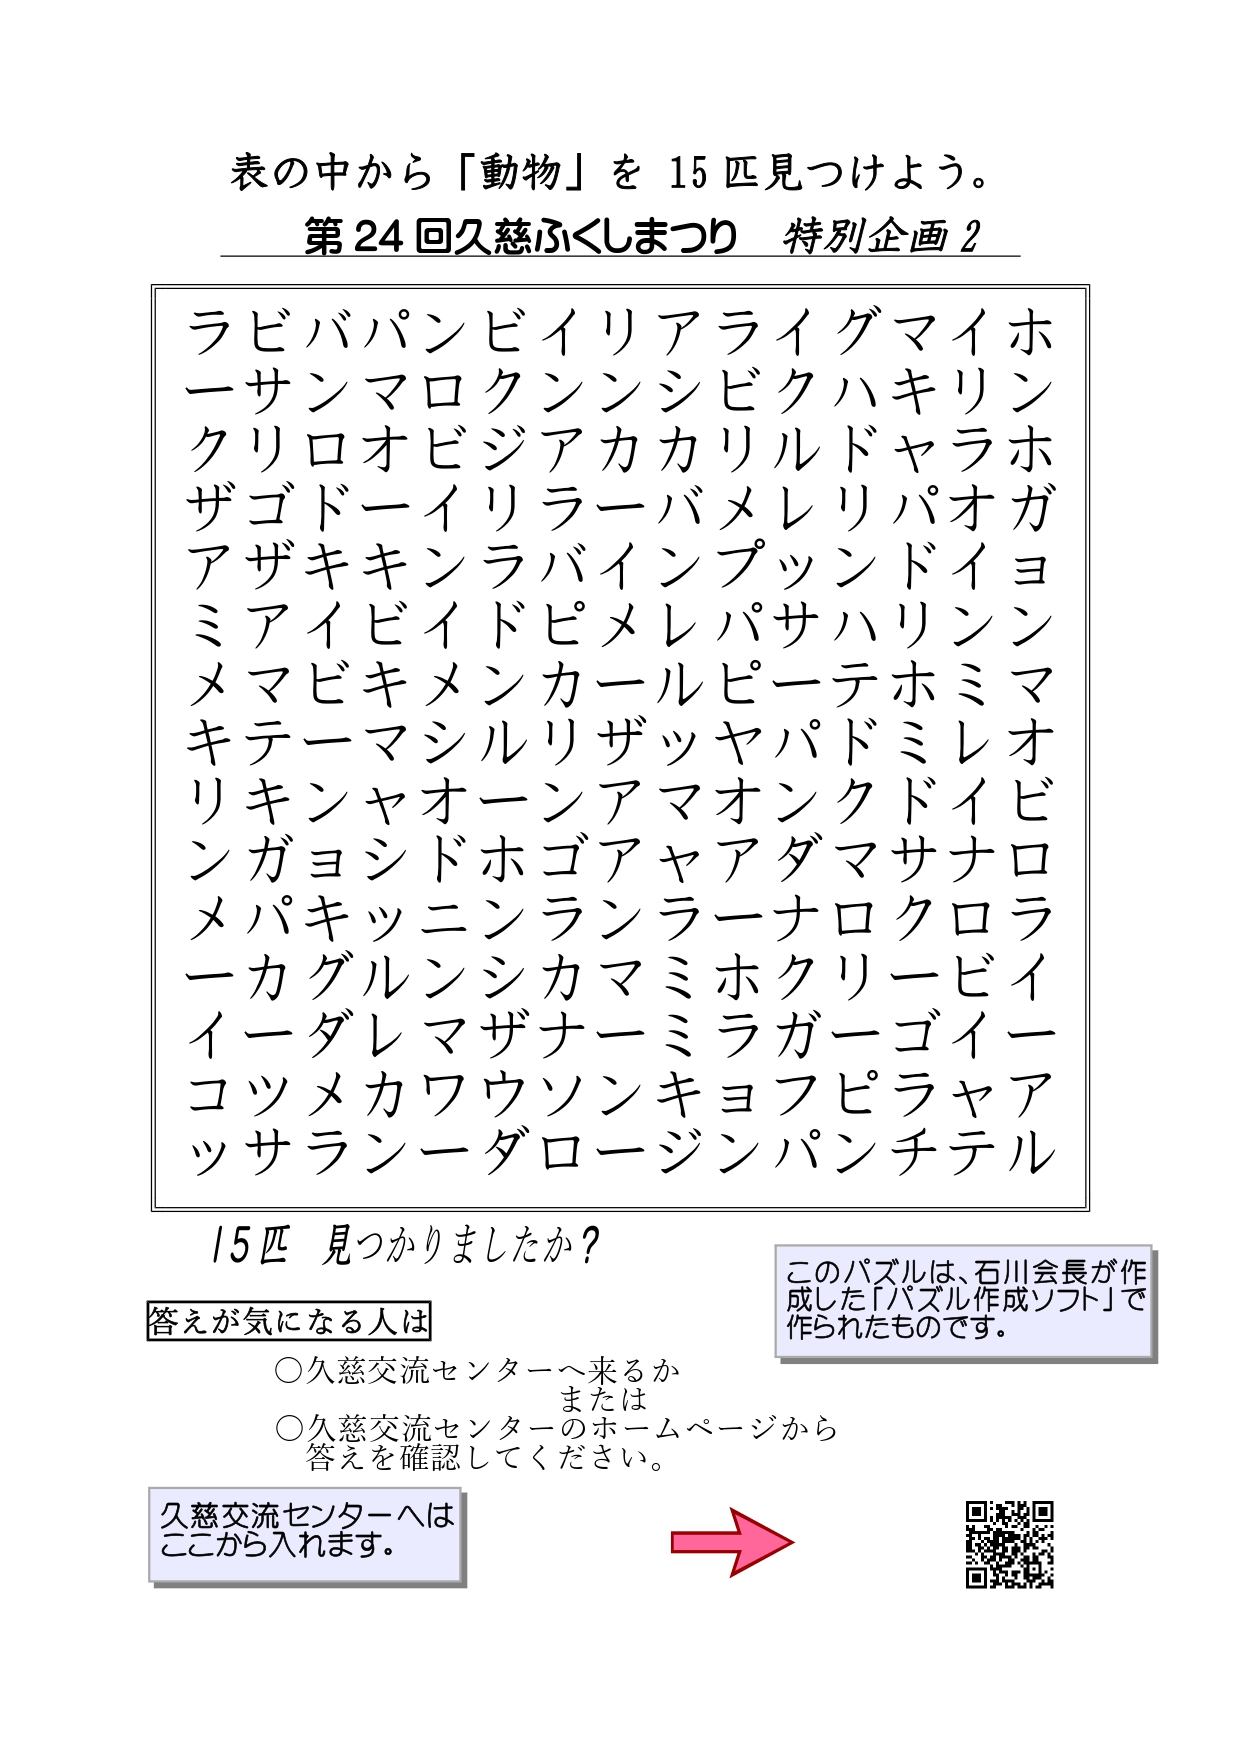 表の中から「動物」を 15匹見つけよう。
第24回久慈ふくしまつり 特別企画2
ラビバパンビイリアライグマイホ
ーサンマロクンンシビクハキリン
クリロオビジアカカリルドャラホ
ザゴドーイリラーバメレリパオガ
アザキキンラバインプッンドイョ
ミアイビイドピメレパサハリンン
メマビキメンカールピーテホミマ
キテーマシルリザッヤパドミレオ
リキンャオーンアマオンクドイビ
ンガョシドホゴアャアダマサナロ
メパキッニンランラーナロクロラ
ーカグルンシカマミホクリービイ
イーダレマザナーミラガーゴイー
コツメカワウソンキョフピラャア
ッサランーダロージンパンチテル
15匹 見つかりましたか?
このパズルは、石川会長が作
成した「パズル作成ソフト」で
作られたものです。
答えが気になる人は
○久慈交流センターへ来るか
または
○久慈交流センターのホームページから
答えを確認してください。
久慈交流センターへは
ここから入れます。